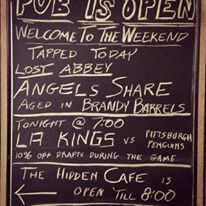 PUB IS OPEN
WELCOME TO THE WEEKEND
TAPPED TODAY
LOST ABBEY
ANGELS SHARE
AGED IN BRANDY BARRELS
TONIGHT @ 7:00
LA KINGS VS PITTSBURGH PENGUINS
10% OFF DRAFTS DURING THE GAME
THE HIDDEN CAFE IS
OPEN 'TILL 8:00